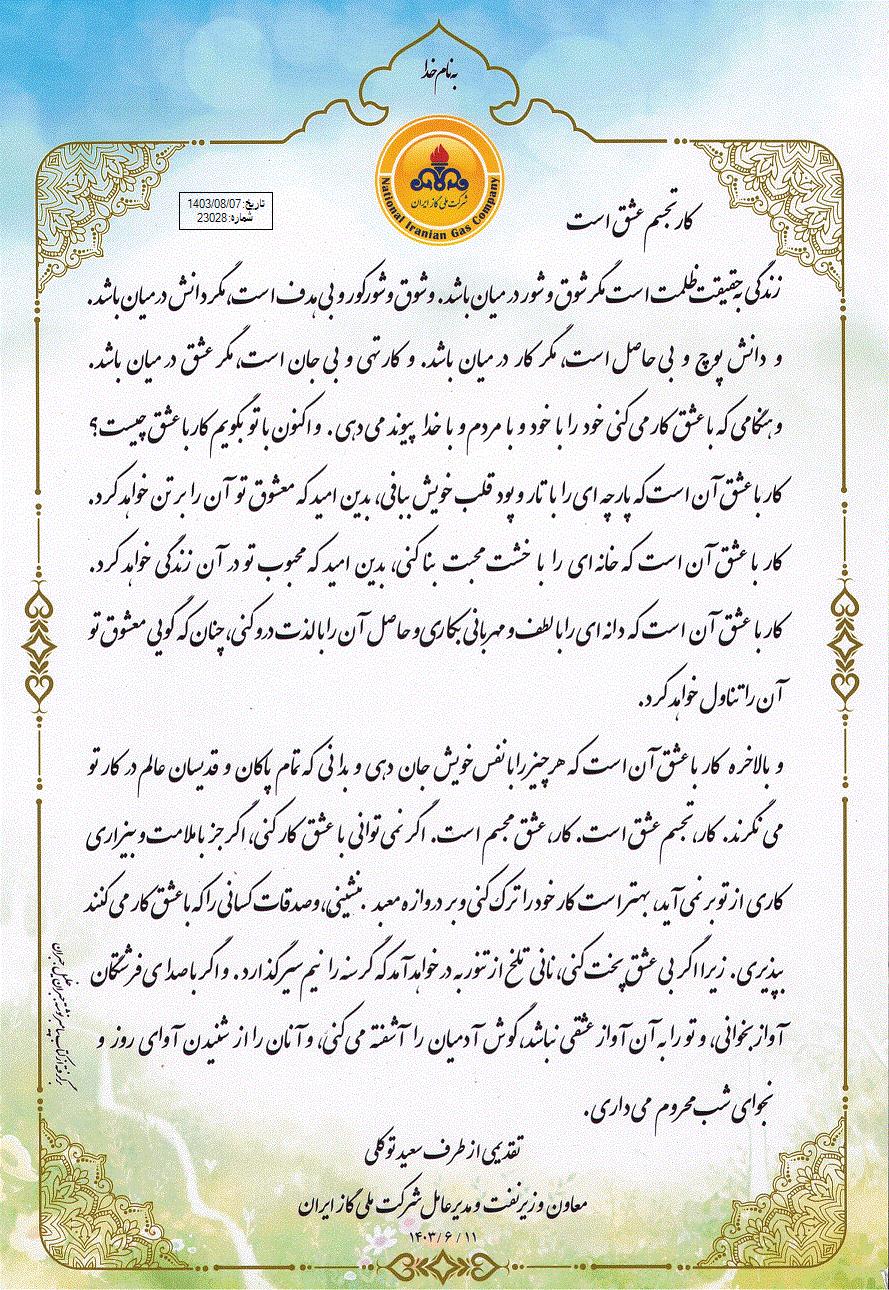 به نام خدا
شرکت ملی گاز ایران
National Iranian Gas Company
تاریخ: 1403/08/07
شماره: 23028
کار تجسم عشق است
زندگی به حقیقت ظلمت است مگر شوق و شور در میان باشد. و شوق و شور کور و بی هدف است، مگر دانش در میان باشد.
و دانش پوچ و بی حاصل است، مگر کار در میان باشد. و کار تهی و بی جان است، مگر عشق در میان باشد.
و هنگامی که با عشق کار می کنی خود را با خود و با مردم و با خدا پیوند می دهی. و اکنون با تو بگویم کار با عشق چیست؟
کار با عشق آن است که پارچه ای را با تار و پود قلب خویش ببافی، بدین امید که معشوق تو آن را بر تن خواهد کرد.
کار با عشق آن است که خانه ای را با خشت محبت بنا کنی، بدین امید که محبوب تو در آن زندگی خواهد کرد.
کار با عشق آن است که دانه ای را با لطف و مهربانی بکاری و حاصل آن را با لذت درو کنی، چنان که گویی معشوق تو
آن را تناول خواهد کرد.
و بالاخره کار با عشق آن است که هر چیز را با نفس خویش جان دهی و بدانی که تمام پاکان و قدیسان عالم در کار تو
می نگرند. کار، تجسم عشق است. کار، عشق مجسم است. اگر نمی توانی با عشق کار کنی، اگر جز با ملامت و بیزاری
کاری از تو بر نمی آید، بهتر است کار خود را ترک کنی و بر دروازه معبد بنشینی، و صدقات کسانی را که با عشق کار می کنند
بپذیری. زیرا اگر بی عشق پخت کنی، نانی تلخ از تنور به در خواهد آمد که گرسنه را نیم سیر گذارد. و اگر با صدای فرشتگان
آواز بخوانی، و تو را به آن آواز عشقی نباشد، گوش آدمیان را آشفته می کنی، و آنان را از شنیدن آوای روز و
نجوای شب محروم می داری.
برگرفته از کتاب پیامبر نوشته جبران خلیل جبران
تقدیمی از طرف سعید توکلی
معاون وزیر نفت و مدیر عامل شرکت ملی گاز ایران
۱۴۰۳/۶/۱۱